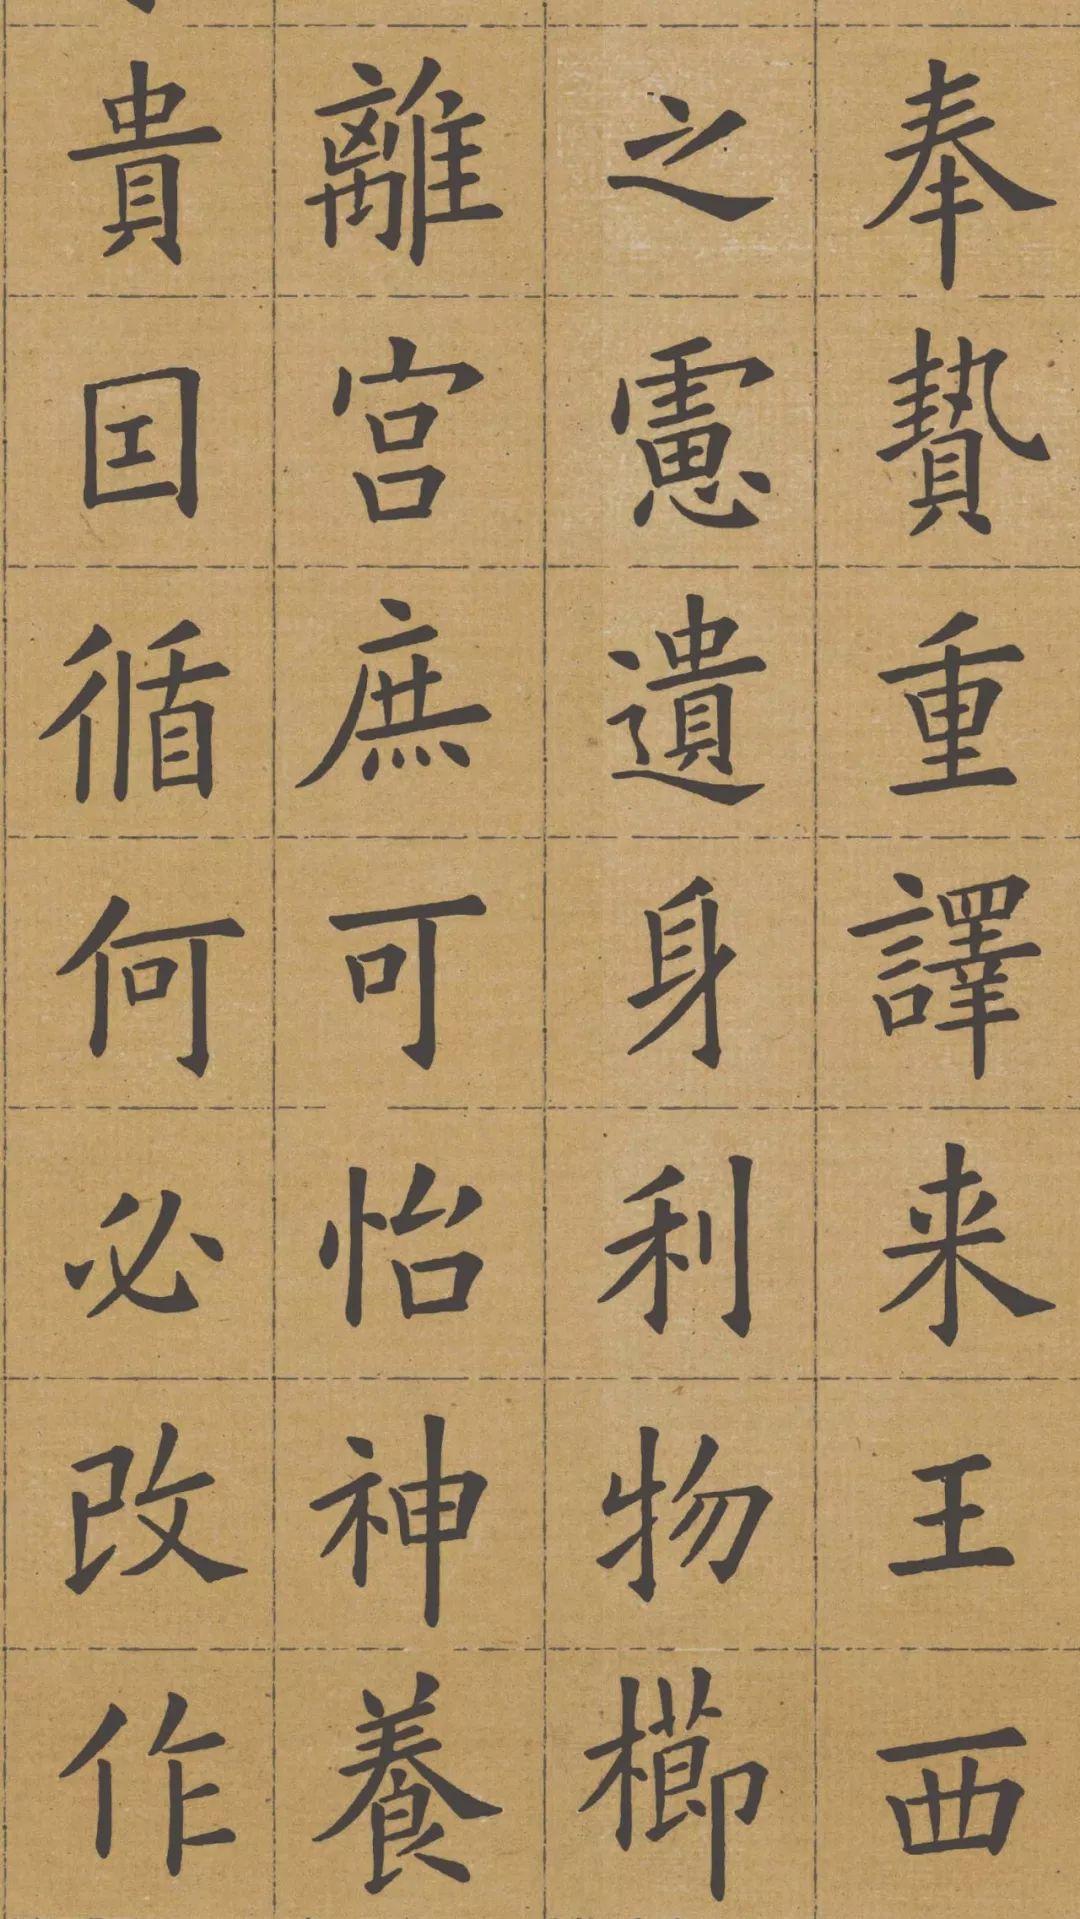 奉贄重譯来王西
之慮遺身利物櫛
離宮庶可怡神養
貴因循何必改作